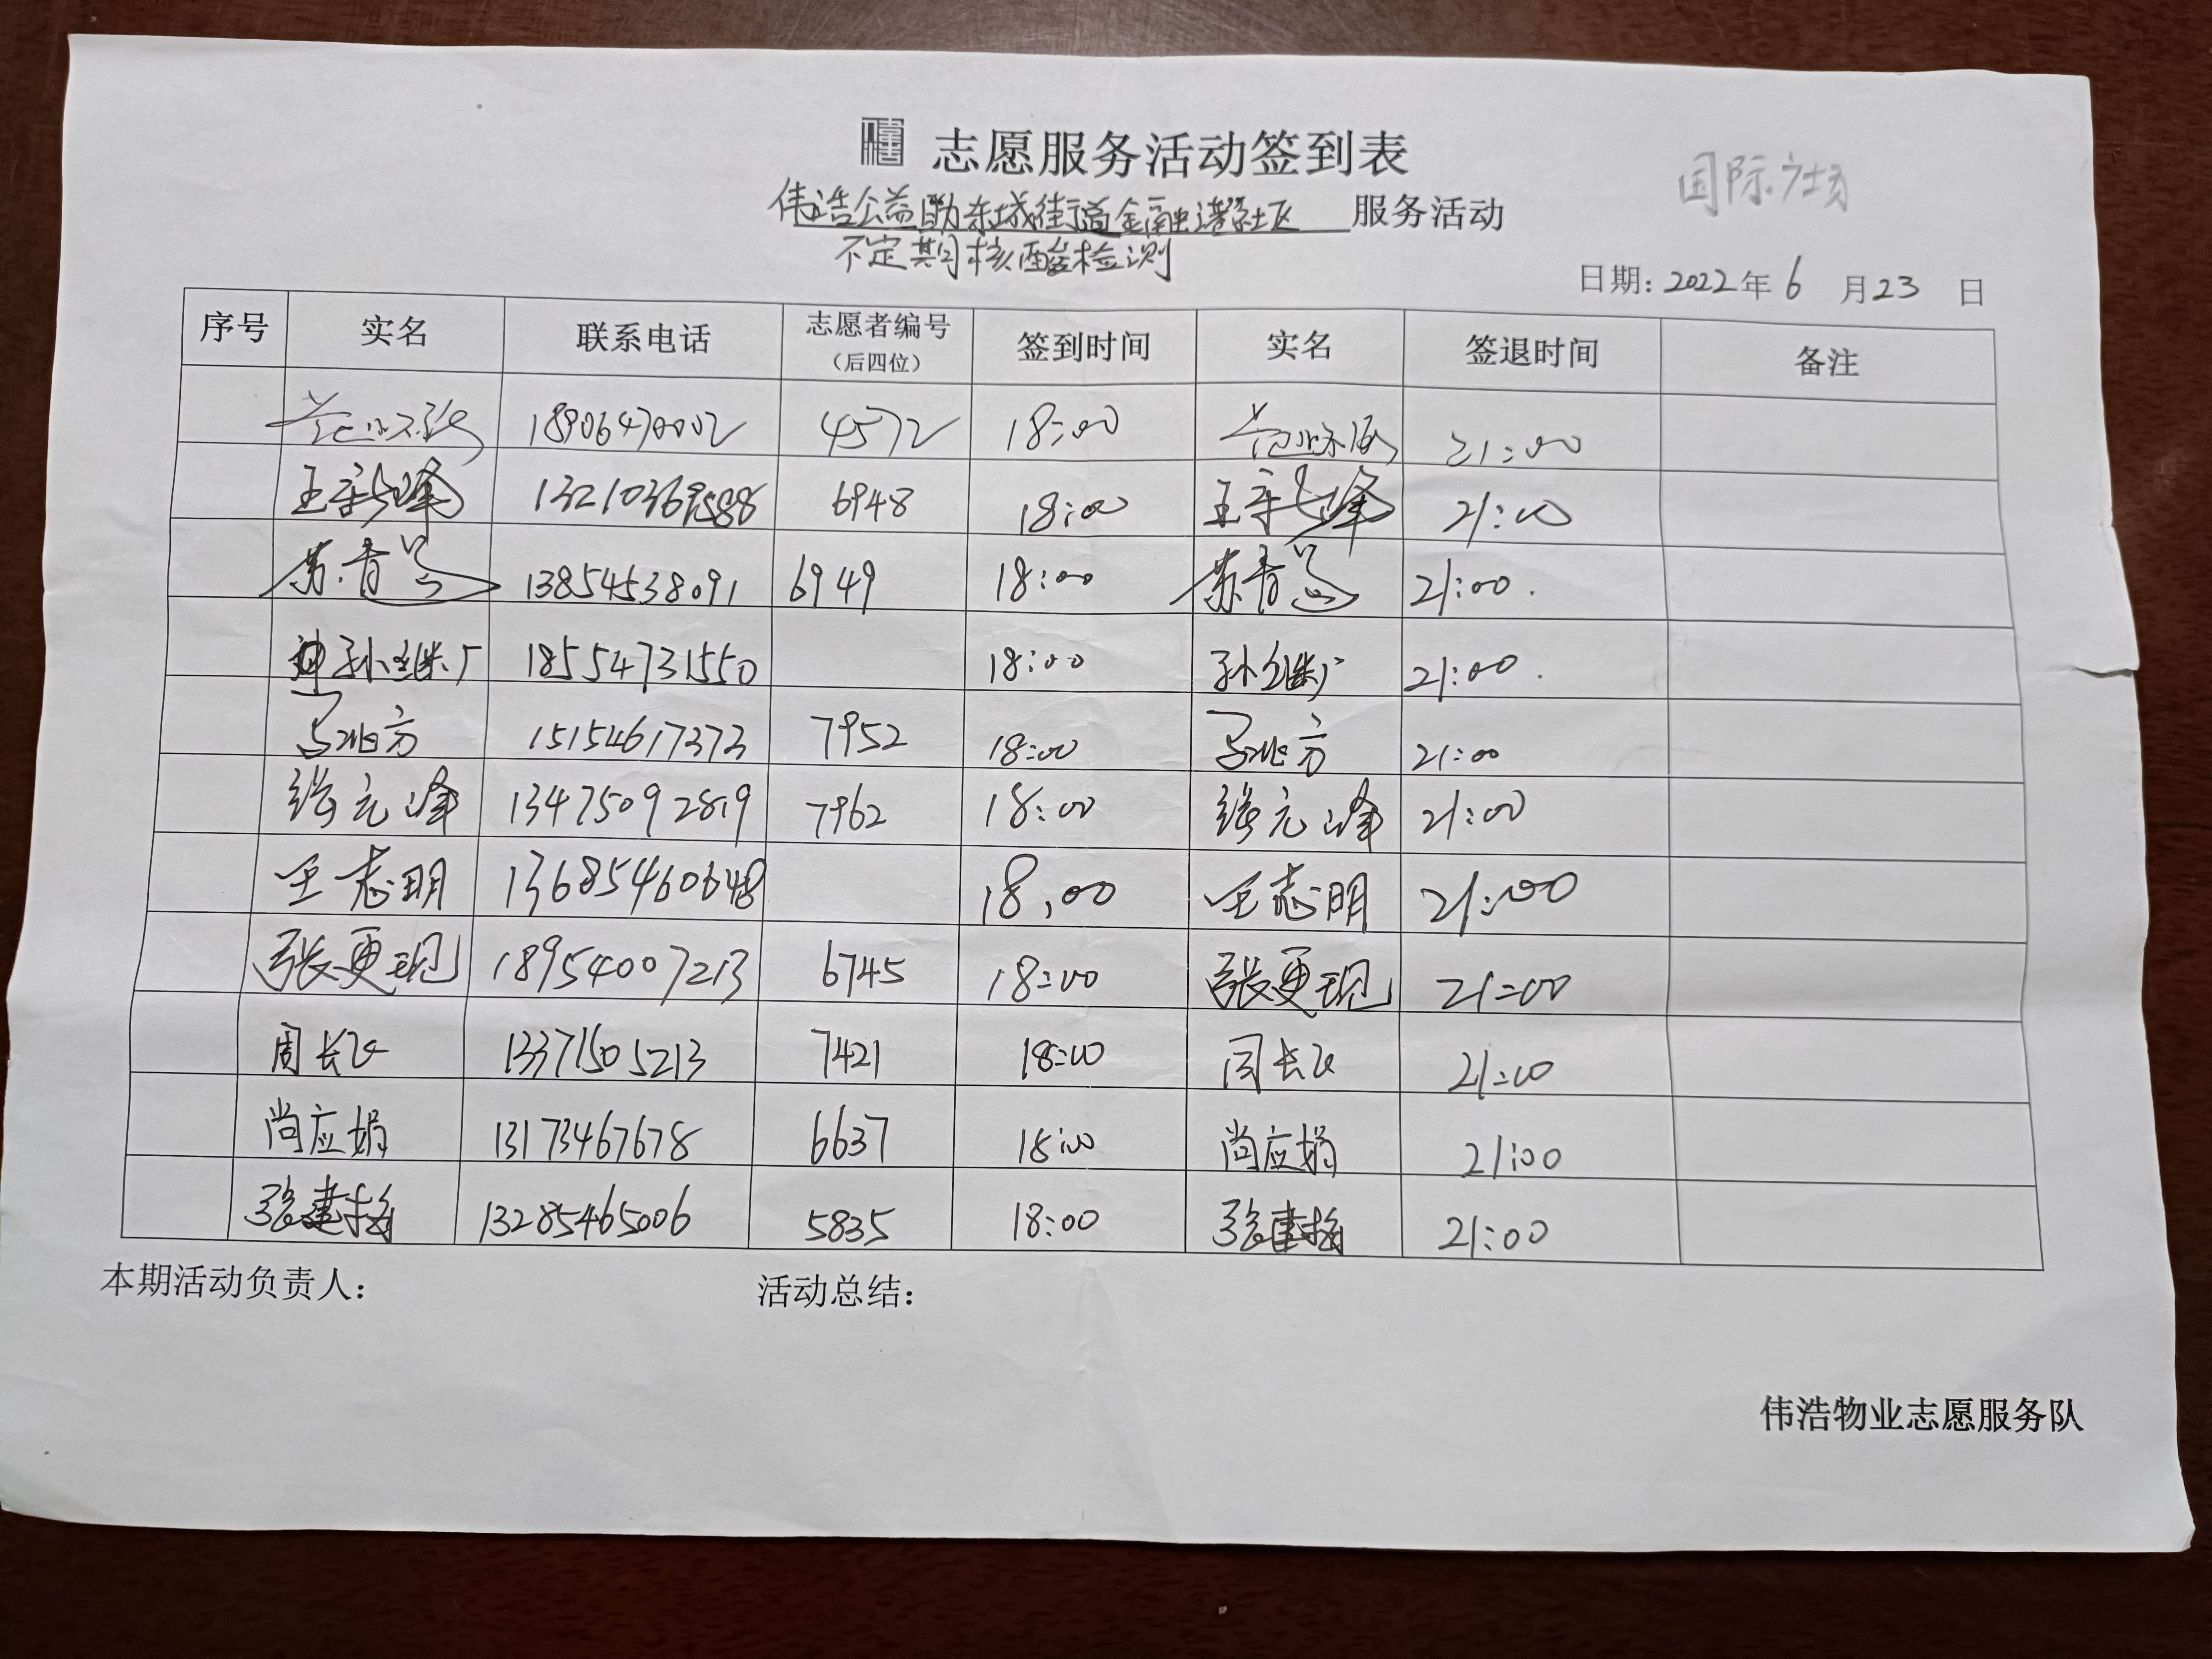 志愿服务活动签到表
国际广场
伟浩公益助东城街道金融港社区 服务活动
不定期核酸检测
日期: 2022年 6 月 23 日
序号 实名 联系电话 志愿者编号(后四位) 签到时间 实名 签退时间 备注
18906470002 4572 18:00 21:00
王 峰 6948 18:00 王 峰 21:00
苏青 13854538091 6949 18:00 苏青 21:00.
孙继广 18554731550 18:00 孙继广 21:00.
马 方 15154617373 7952 18:00 马 方 21:00
张元峰 13475092819 7962 18:00 张元峰 21:00
王志明 13685460648 18,00 王志明 21:00
张更现 18954007213 6745 18:00 张更现 21:00
周长 13371505213 7421 18:00 周长 21:00
尚应娟 13173467678 6637 18:00 尚应娟 21:00
张建梅 13285465006 5835 18:00 张建梅 21:00
本期活动负责人: 活动总结:
伟浩物业志愿服务队